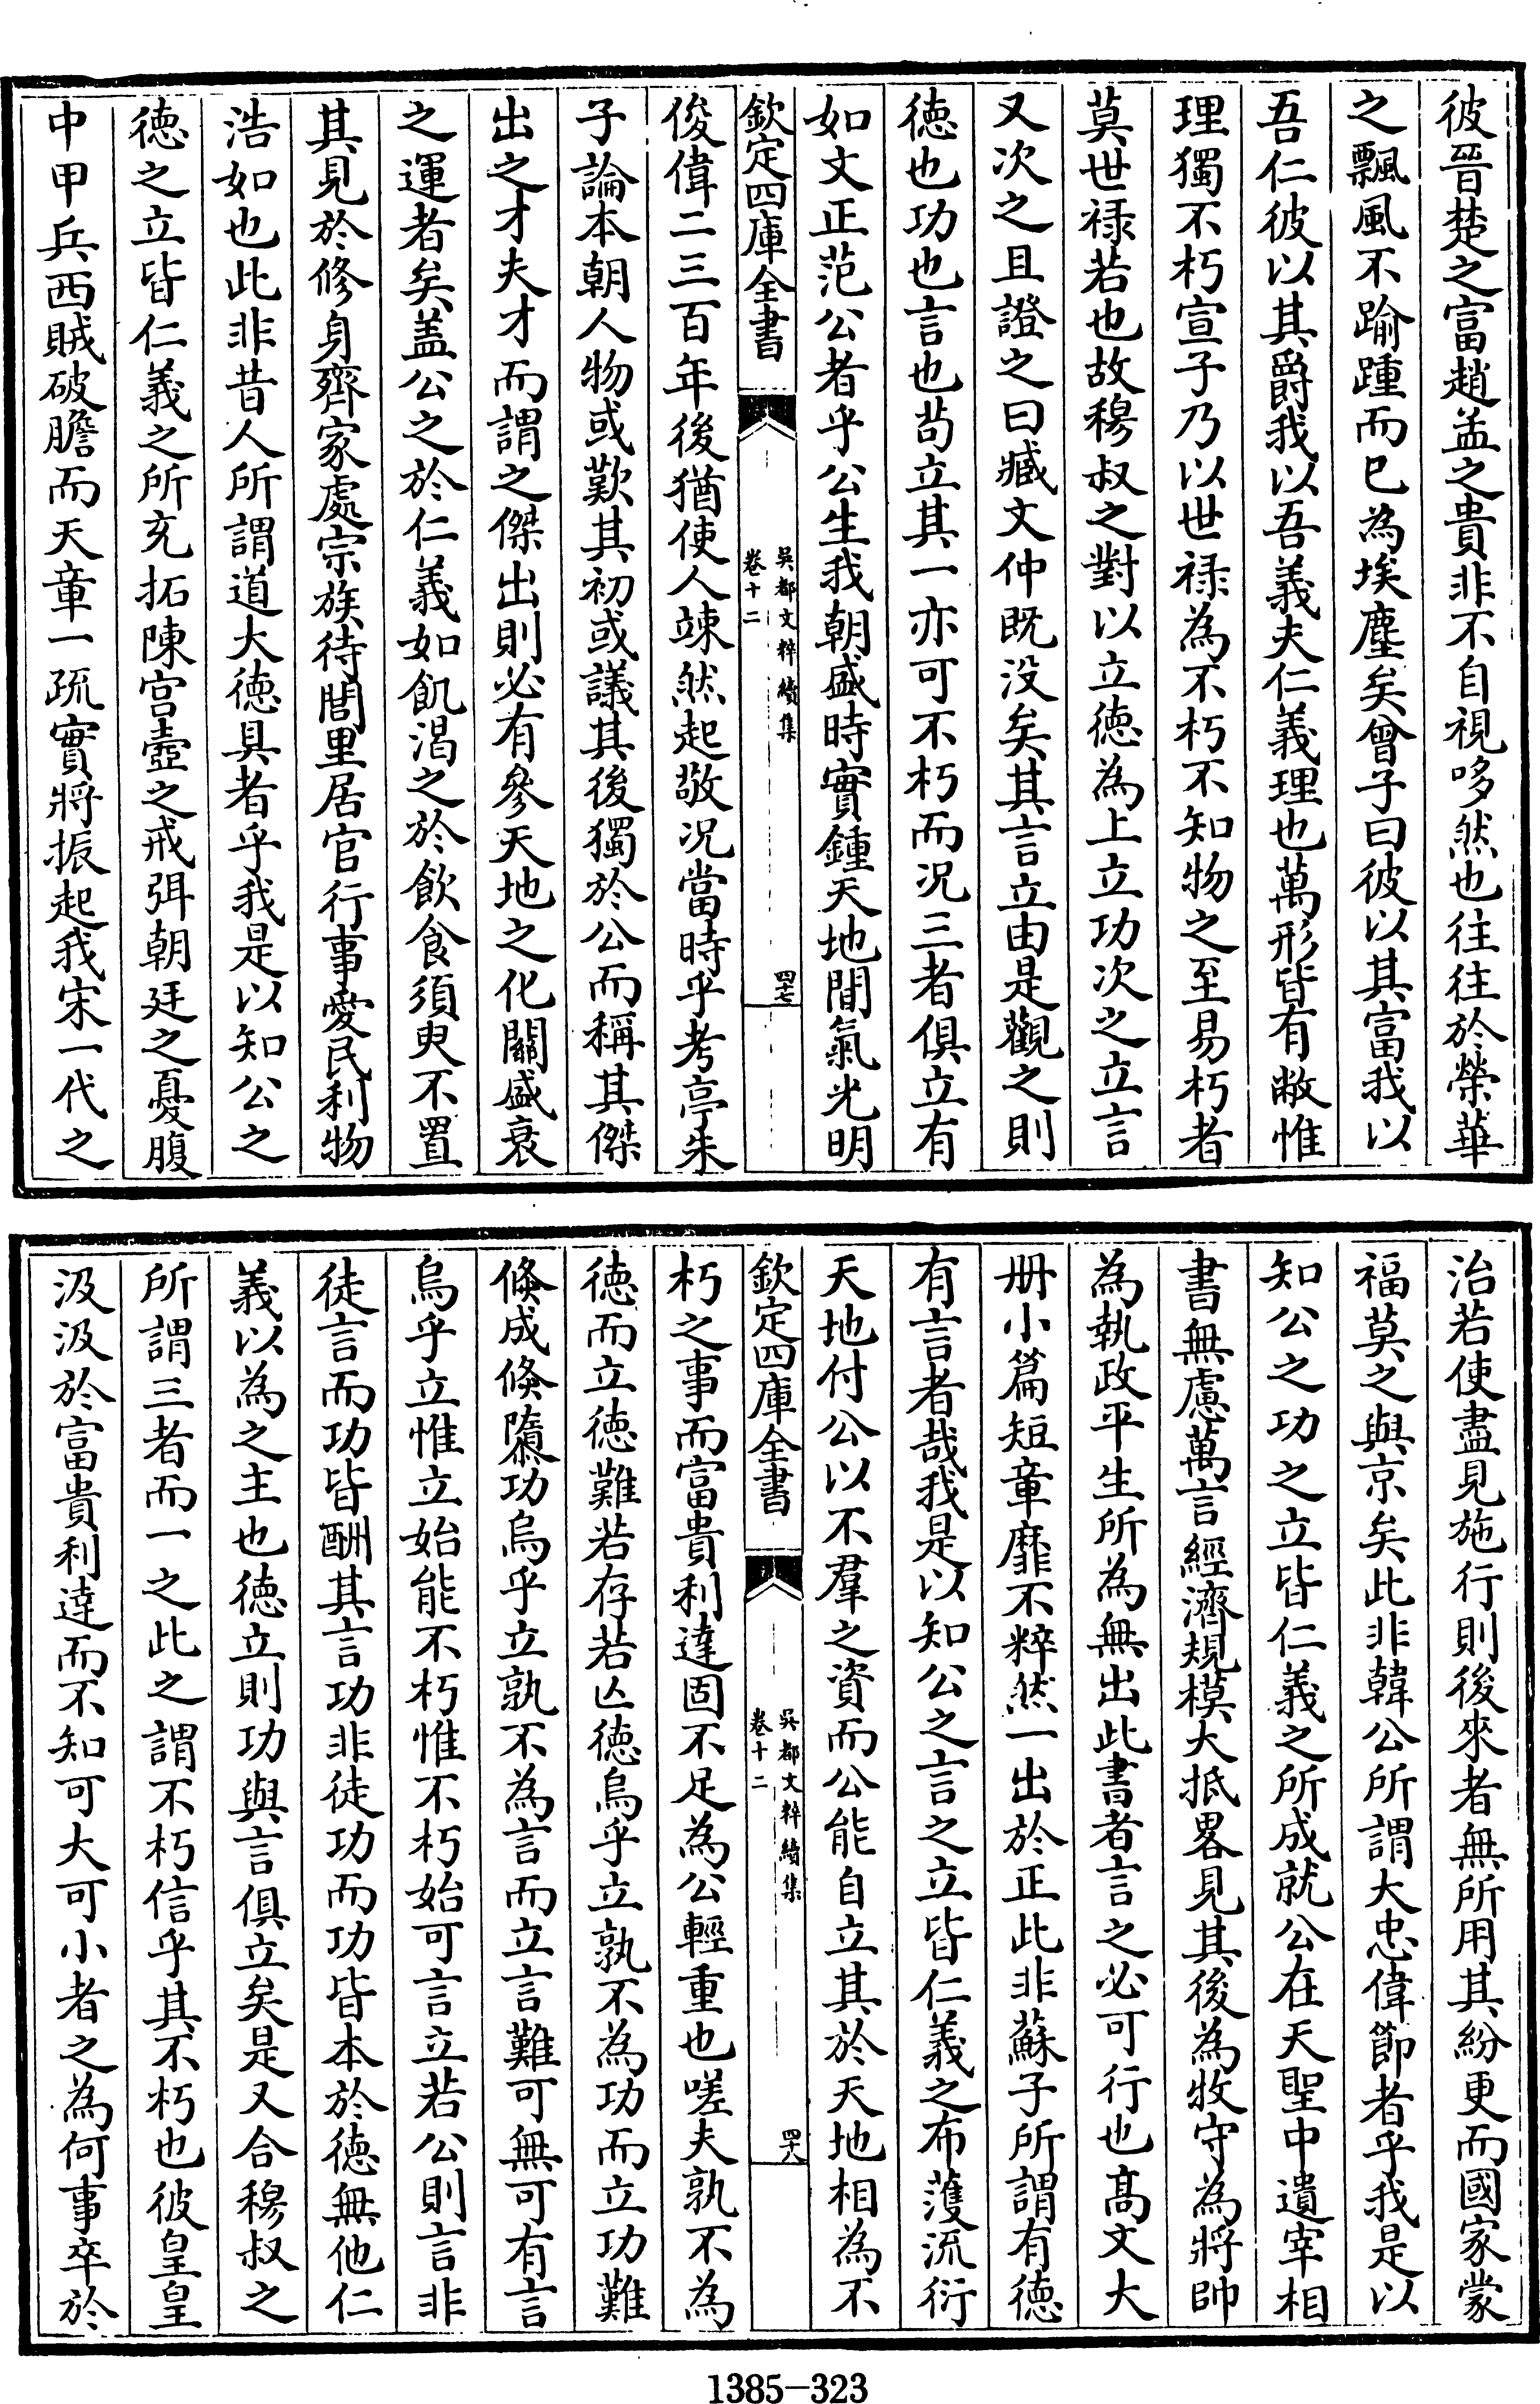 彼晉楚之富趙孟之貴非不自視哆然也往往於榮華
之飄風不踰踵而已為埃塵矣曾子曰彼以其富我以
吾仁彼以其爵我以吾義夫仁義理也萬形皆有敝惟
理獨不朽宣子乃以世禄為不朽不知物之至易朽者
莫世禄若也故穆叔之對以立徳為上立功次之立言
又次之且證之曰臧文仲既没矣其言立由是觀之則
徳也功也言也茍立其一亦可不朽而况三者俱立有
如文正范公者乎公生我朝盛時實鍾天地間氣光明
欽定四庫全書
吳都文粹續集
卷十二
四十七
俊偉二三百年後猶使人竦然起敬况當時乎考亭朱
子論本朝人物或歎其初或議其後獨於公而稱其傑
出之才夫才而謂之傑出則必有參天地之化關盛衰
之運者矣盖公之於仁義如飢渴之於飲食須臾不置
其見於修身齊家處宗族待閭里居官行事愛民利物
浩如也此非昔人所謂道大徳具者乎我是以知公之
徳之立皆仁義之所充拓陳宫壼之戒弭朝廷之憂腹
中甲兵西賊破膽而天章一疏實將振起我宋一代之
治若使盡見施行則後來者無所用其紛更而國家蒙
福莫之與京矣此非韓公所謂大忠偉節者乎我是以
知公之功之立皆仁義之所成就公在天聖中遺宰相
書無慮萬言經濟規模大抵畧見其後為牧守為將帥
為執政平生所為無出此書者言之必可行也髙文大
册小篇短章靡不粹然一出於正此非蘇子所謂有徳
有言者哉我是以知公之言之立皆仁義之布濩流衍
天地付公以不羣之資而公能自立其於天地相為不
欽定四庫全書
吳都文粹續集
卷十二
四十八
朽之事而富貴利達固不足為公輕重也嗟夫孰不為
徳而立徳難若存若亾徳烏乎立孰不為功而立功難
倏成倏隳功烏乎立孰不為言而立言難可無可有言
烏乎立惟立始能不朽惟不朽始可言立若公則言非
徒言而功皆酬其言功非徒功而功皆本於徳無他仁
義以為之主也徳立則功與言俱立矣是又合穆叔之
所謂三者而一之此之謂不朽信乎其不朽也彼皇皇
汲汲於富貴利達而不知可大可小者之為何事卒於
1385-323